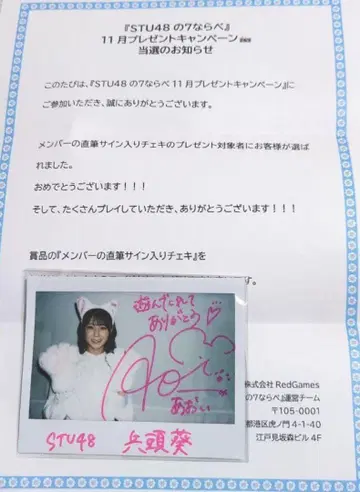 『STU48 の7ならべ』
11月プレゼントキャンペーン
当選のお知らせ
このたびは、『STU48 の7ならべ 11月プレゼントキャンペーン』に
ご参加いただき、誠にありがとうございます。
メンバーの直筆サイン入りチェキのプレゼント対象者にお客様が選ば
れました。
おめでとうございます！！！
そして、たくさんプレイしていただき、ありがとうございます！！！
賞品の『メンバーの直筆サイン入りチェキ』を
遊んでくれて
ありがとう♡
Aoi
あおい
STU48 兵頭葵
株式会社 RedGames
の7ならべ』運営チーム
〒105-0001
都港区虎ノ門 4-1-40
江戸見坂森ビル 4F